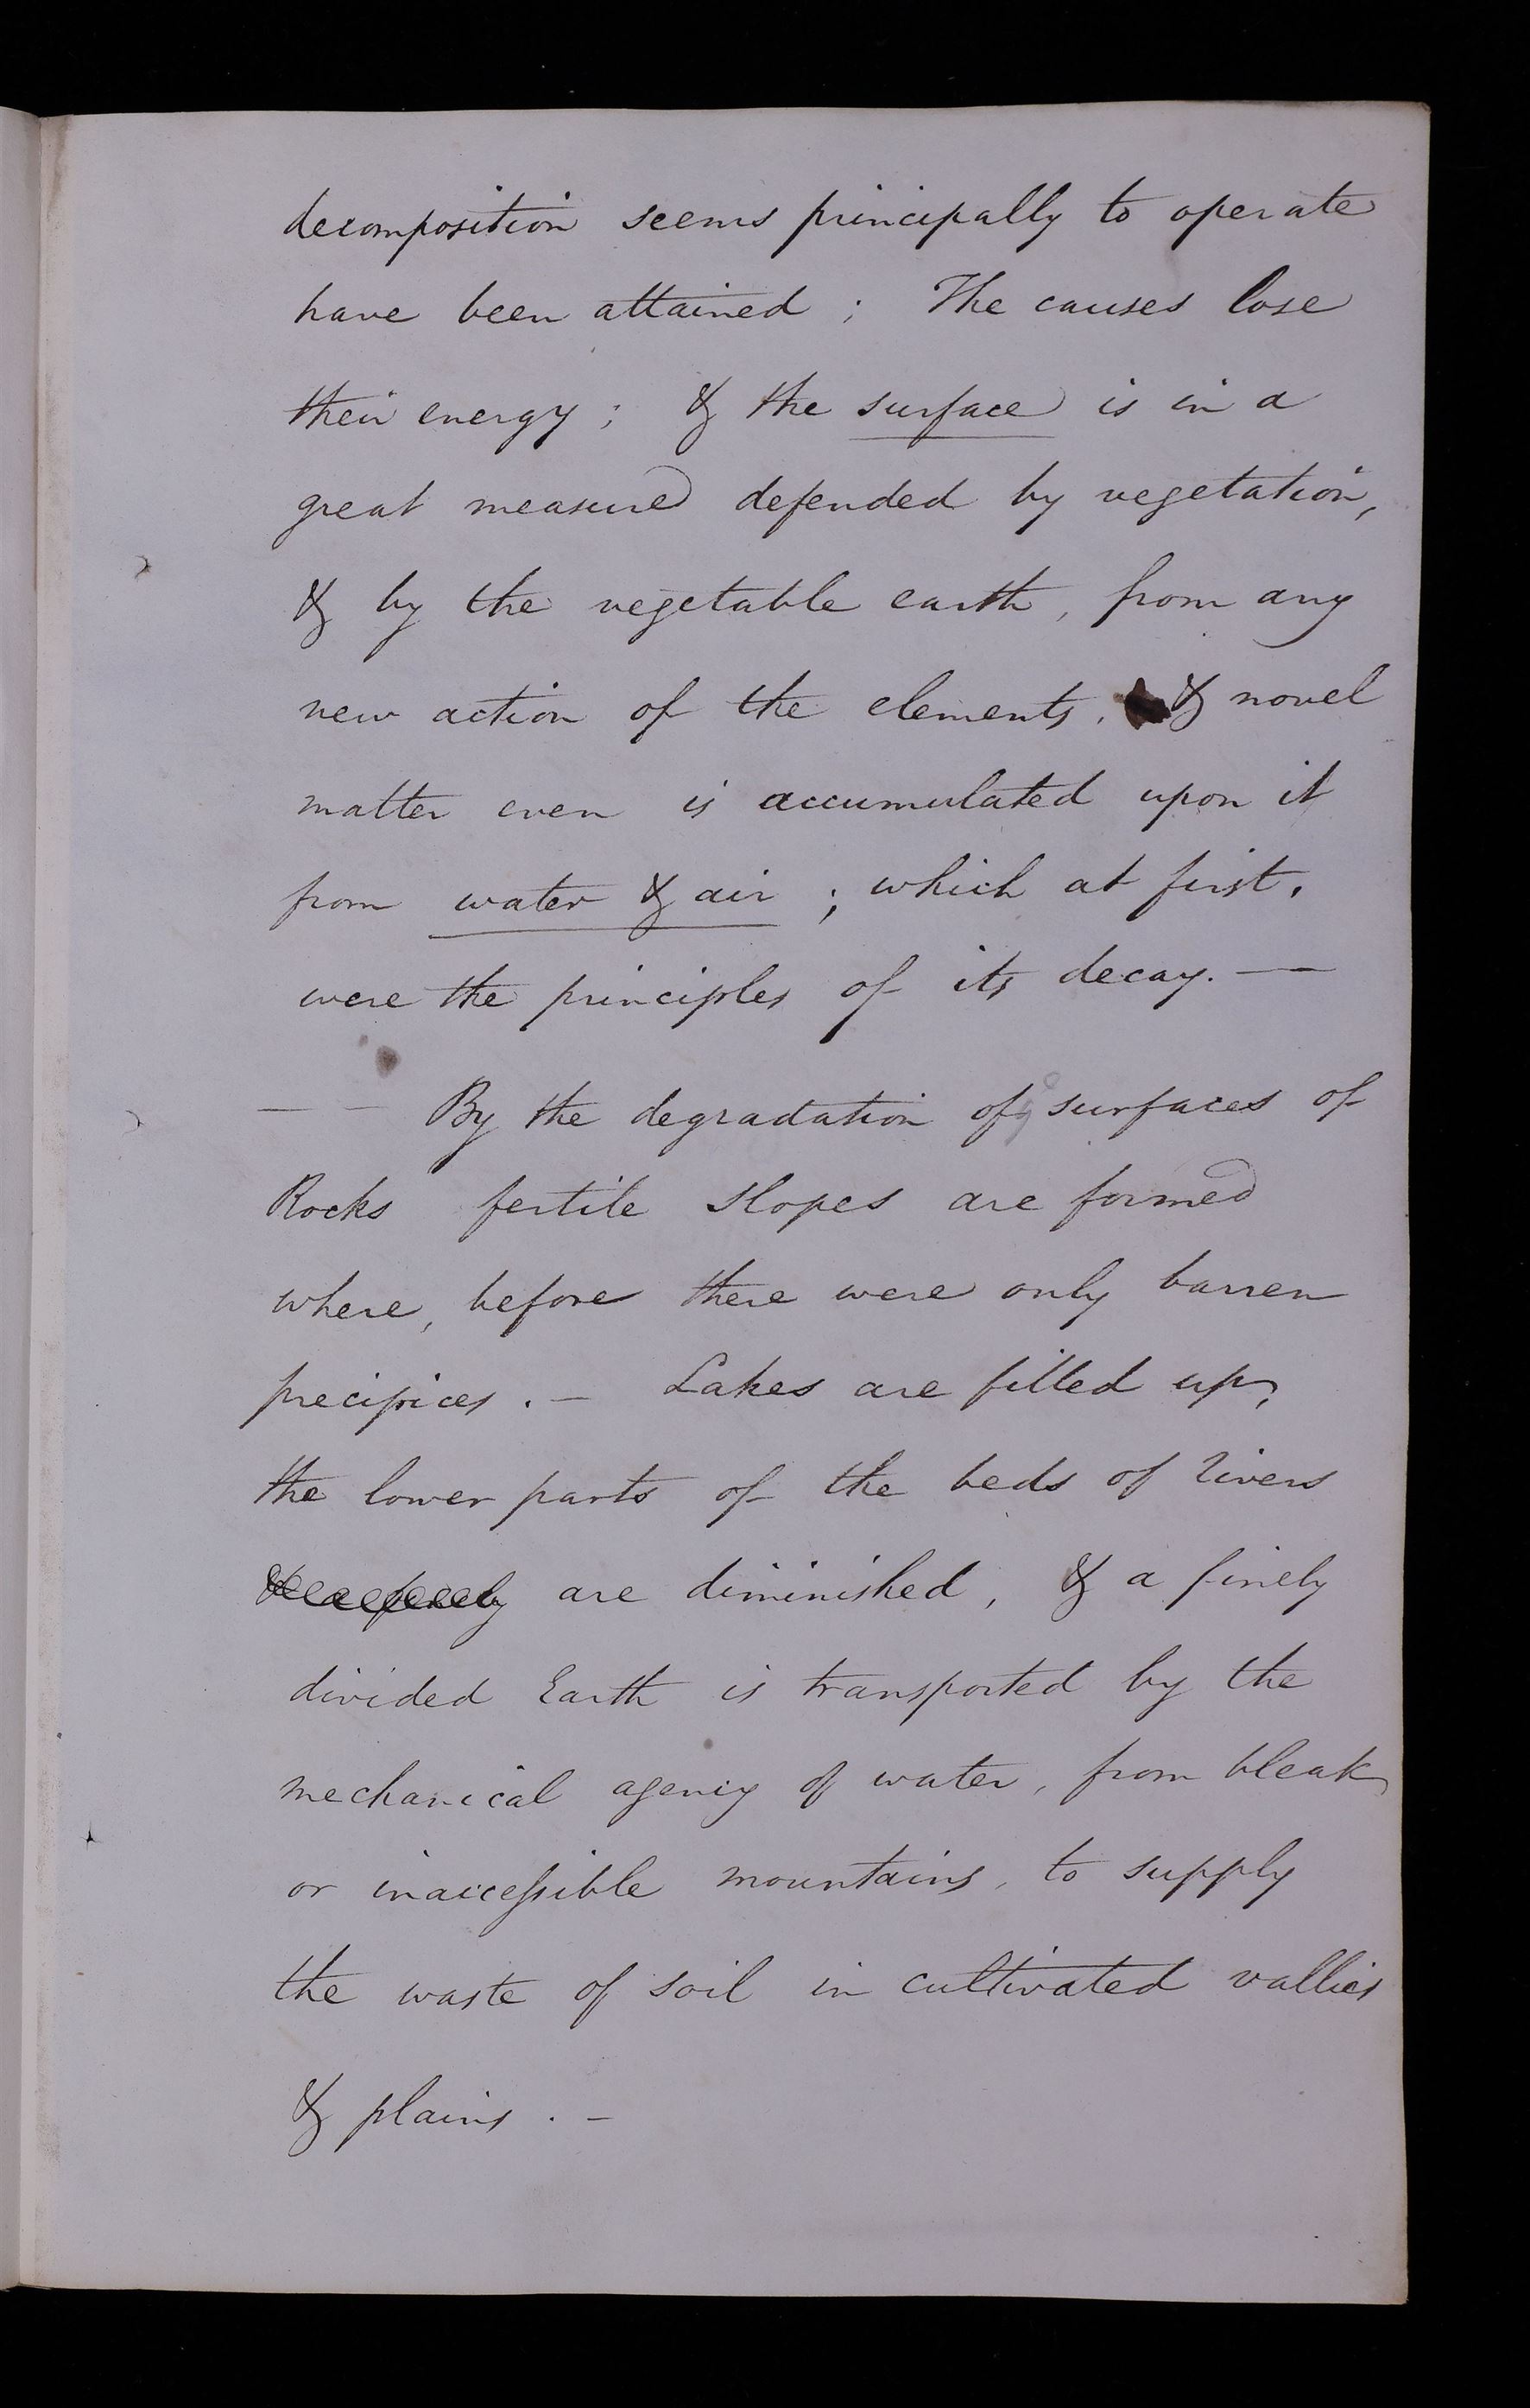 decomposition seems principally to operate
have been attained ; The causes lose
their energy ; & the surface is in a
great measure defended by vegetation,
& by the vegetable earth, from any
new action of the elements. & novel
matter even is accumulated upon it
from water & air ; which at first,
were the principles of its decay. —
— — By the degradation of surfaces of
Rocks fertile slopes are formed
where, before there were only barren
precipices. — Lakes are filled up,
the lower parts of the beds of rivers
are diminished, & a finely
divided Earth is transported by the
mechanical agency of water, from bleak
or inaccessible mountains, to supply
the waste of soil in cultivated vallies
& plains. —